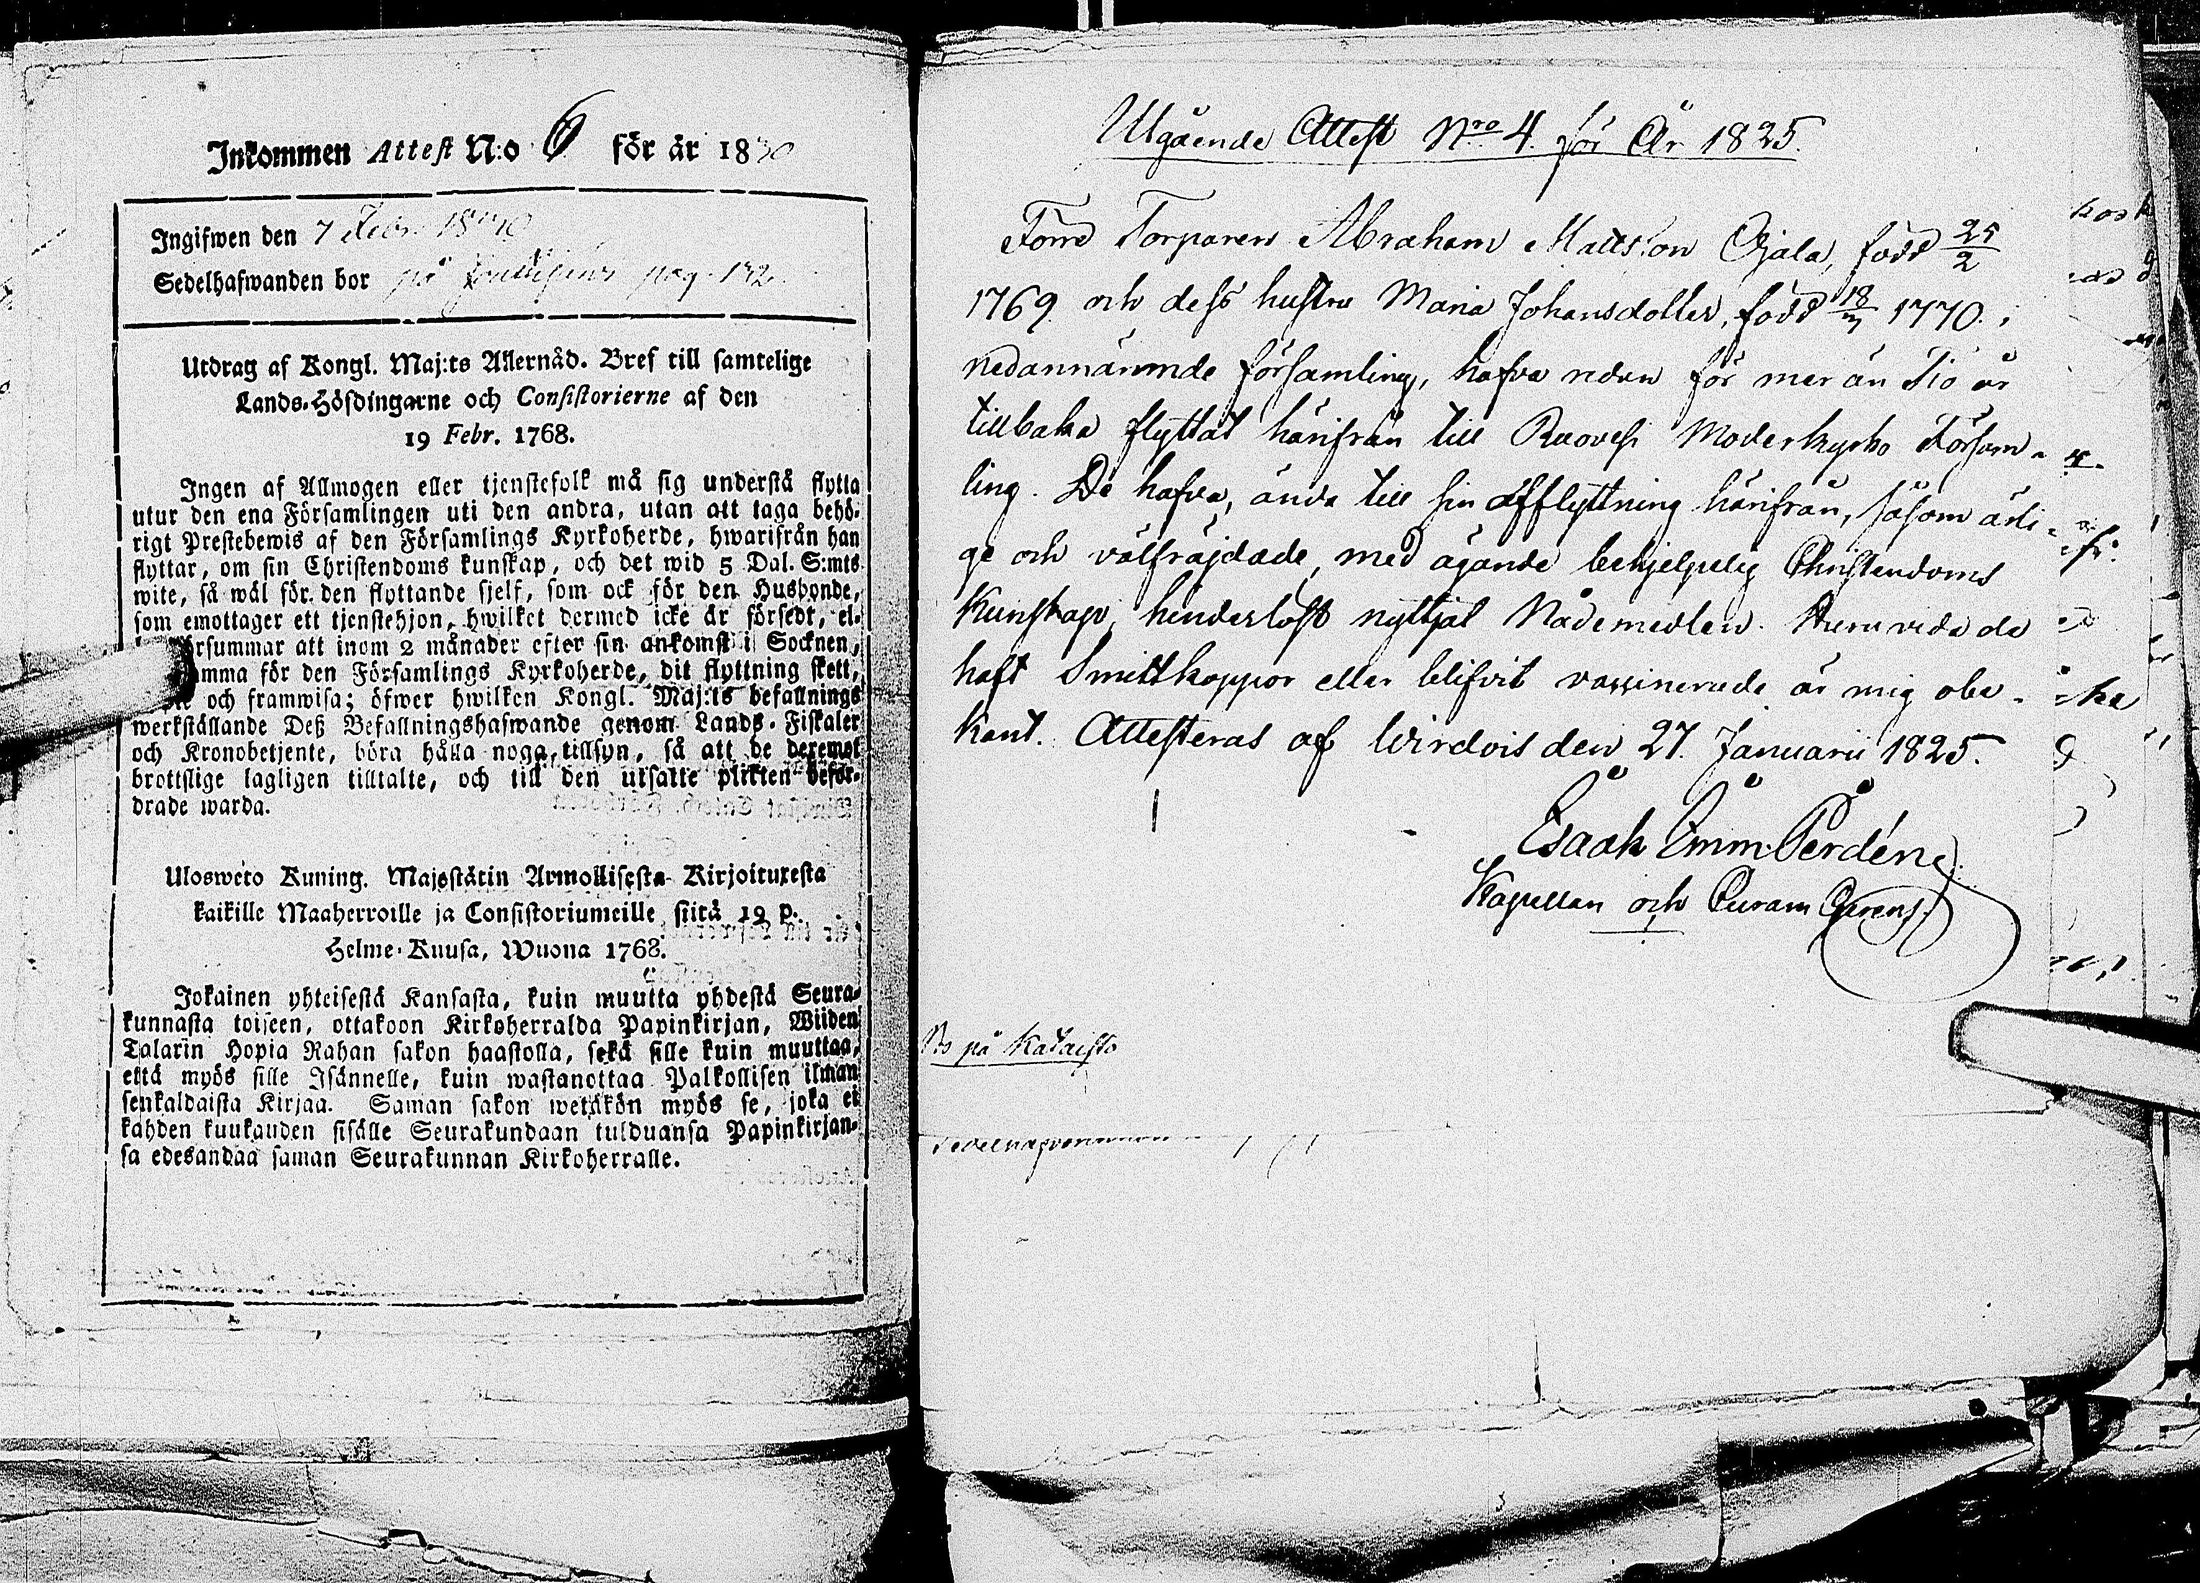 Inkommen Attest N:o 6 för år 1830
Ingifwen den 7 Febr. 1830
Sedelhafwanden bor på pag. 132.
Utdrag af Kongl. Maj:ts Allernåd. Bref till samtelige
Lands-Höfdingarne och Consistorierne af den
19 Febr. 1768.
Ingen af Allmogen eller tjenstefolk må sig understå flytta
utur den ena Församlingen uti den andra, utan att taga behö-
rigt Prestebewis af den Församlings Kyrkoherde, hwarifrån han
flyttar, om sin Christendoms kunskap, och det wid 5 Dal. S:mts
wite, så wäl för den flyttande sjelf, som ock för den Husbonde,
som emottager ett tjenstehjon, hwilket dermed icke är försedt, el-
rsummar att inom 2 månader efter sin ankomst i Socknen,
amma för den Församlings Kyrkoherde, dit flyttning skett,
och framwisa; öfwer hwilken Kongl. Maj:ts befallnings
werkställande Deß Befallningshafwande genom Lands-Fiskaler
och Kronobetjente, böra hålla noga tillsyn, så att de deremot
brottslige lagligen tilltalte, och till den utsatte plikten beför-
drade warda.
Ulosweto Kuning. Majestätin Armollisesta Kirjoituxesta
kaikille Maaherroille ja Consistoriumeille siitä 19 p.
Helme-Kuusa, Wuona 1768.
Jokainen yhteisestä Kansasta, kuin muutta yhdestä Seura-
kunnasta toiseen, ottakoon Kirkoherralda Papinkirjan, Wiiden
Talarin Hopia Rahan sakon haastolla, sekä sille kuin muuttaa,
että myös sille Isännelle, kuin wastanottaa Palkollisen ilman
senkaldaista Kirjaa. Saman sakon wetäkön myös se, joka ei
kahden kuukauden sisälle Seurakundaan tulduansa Papinkirjan-
sa edesandaa saman Seurakunnan Kirkoherralle.
Utgående Attest Nro 4. för År 1825.
Förre Torparen Abraham Mattsson Ojala, född 25/2
1769 och dess hustru Maria Johansdotter, född 18/7 1770. i
nedannämnde församling, hafva redan för mer än Tio år
tillbaka flyttat härifrån till Ruovesi Moderkyrko Försam-
ling. De hafva, ända till sin afflyttning härifrån, såsom ärli-
ge och välfräjdade, med ägande behjelpelig Christendoms
Kunskap, hinderlöst nyttjat Nådemedlen. Huruvida de
haft Smittkoppor eller blifvit vaccinerade är mig obe-
kant. Attesteras af Wirdois den 27. Januarii 1825.
Esaak Emm. Perdén
Kapellan och Curam Gerens.
Bo på Kataisto